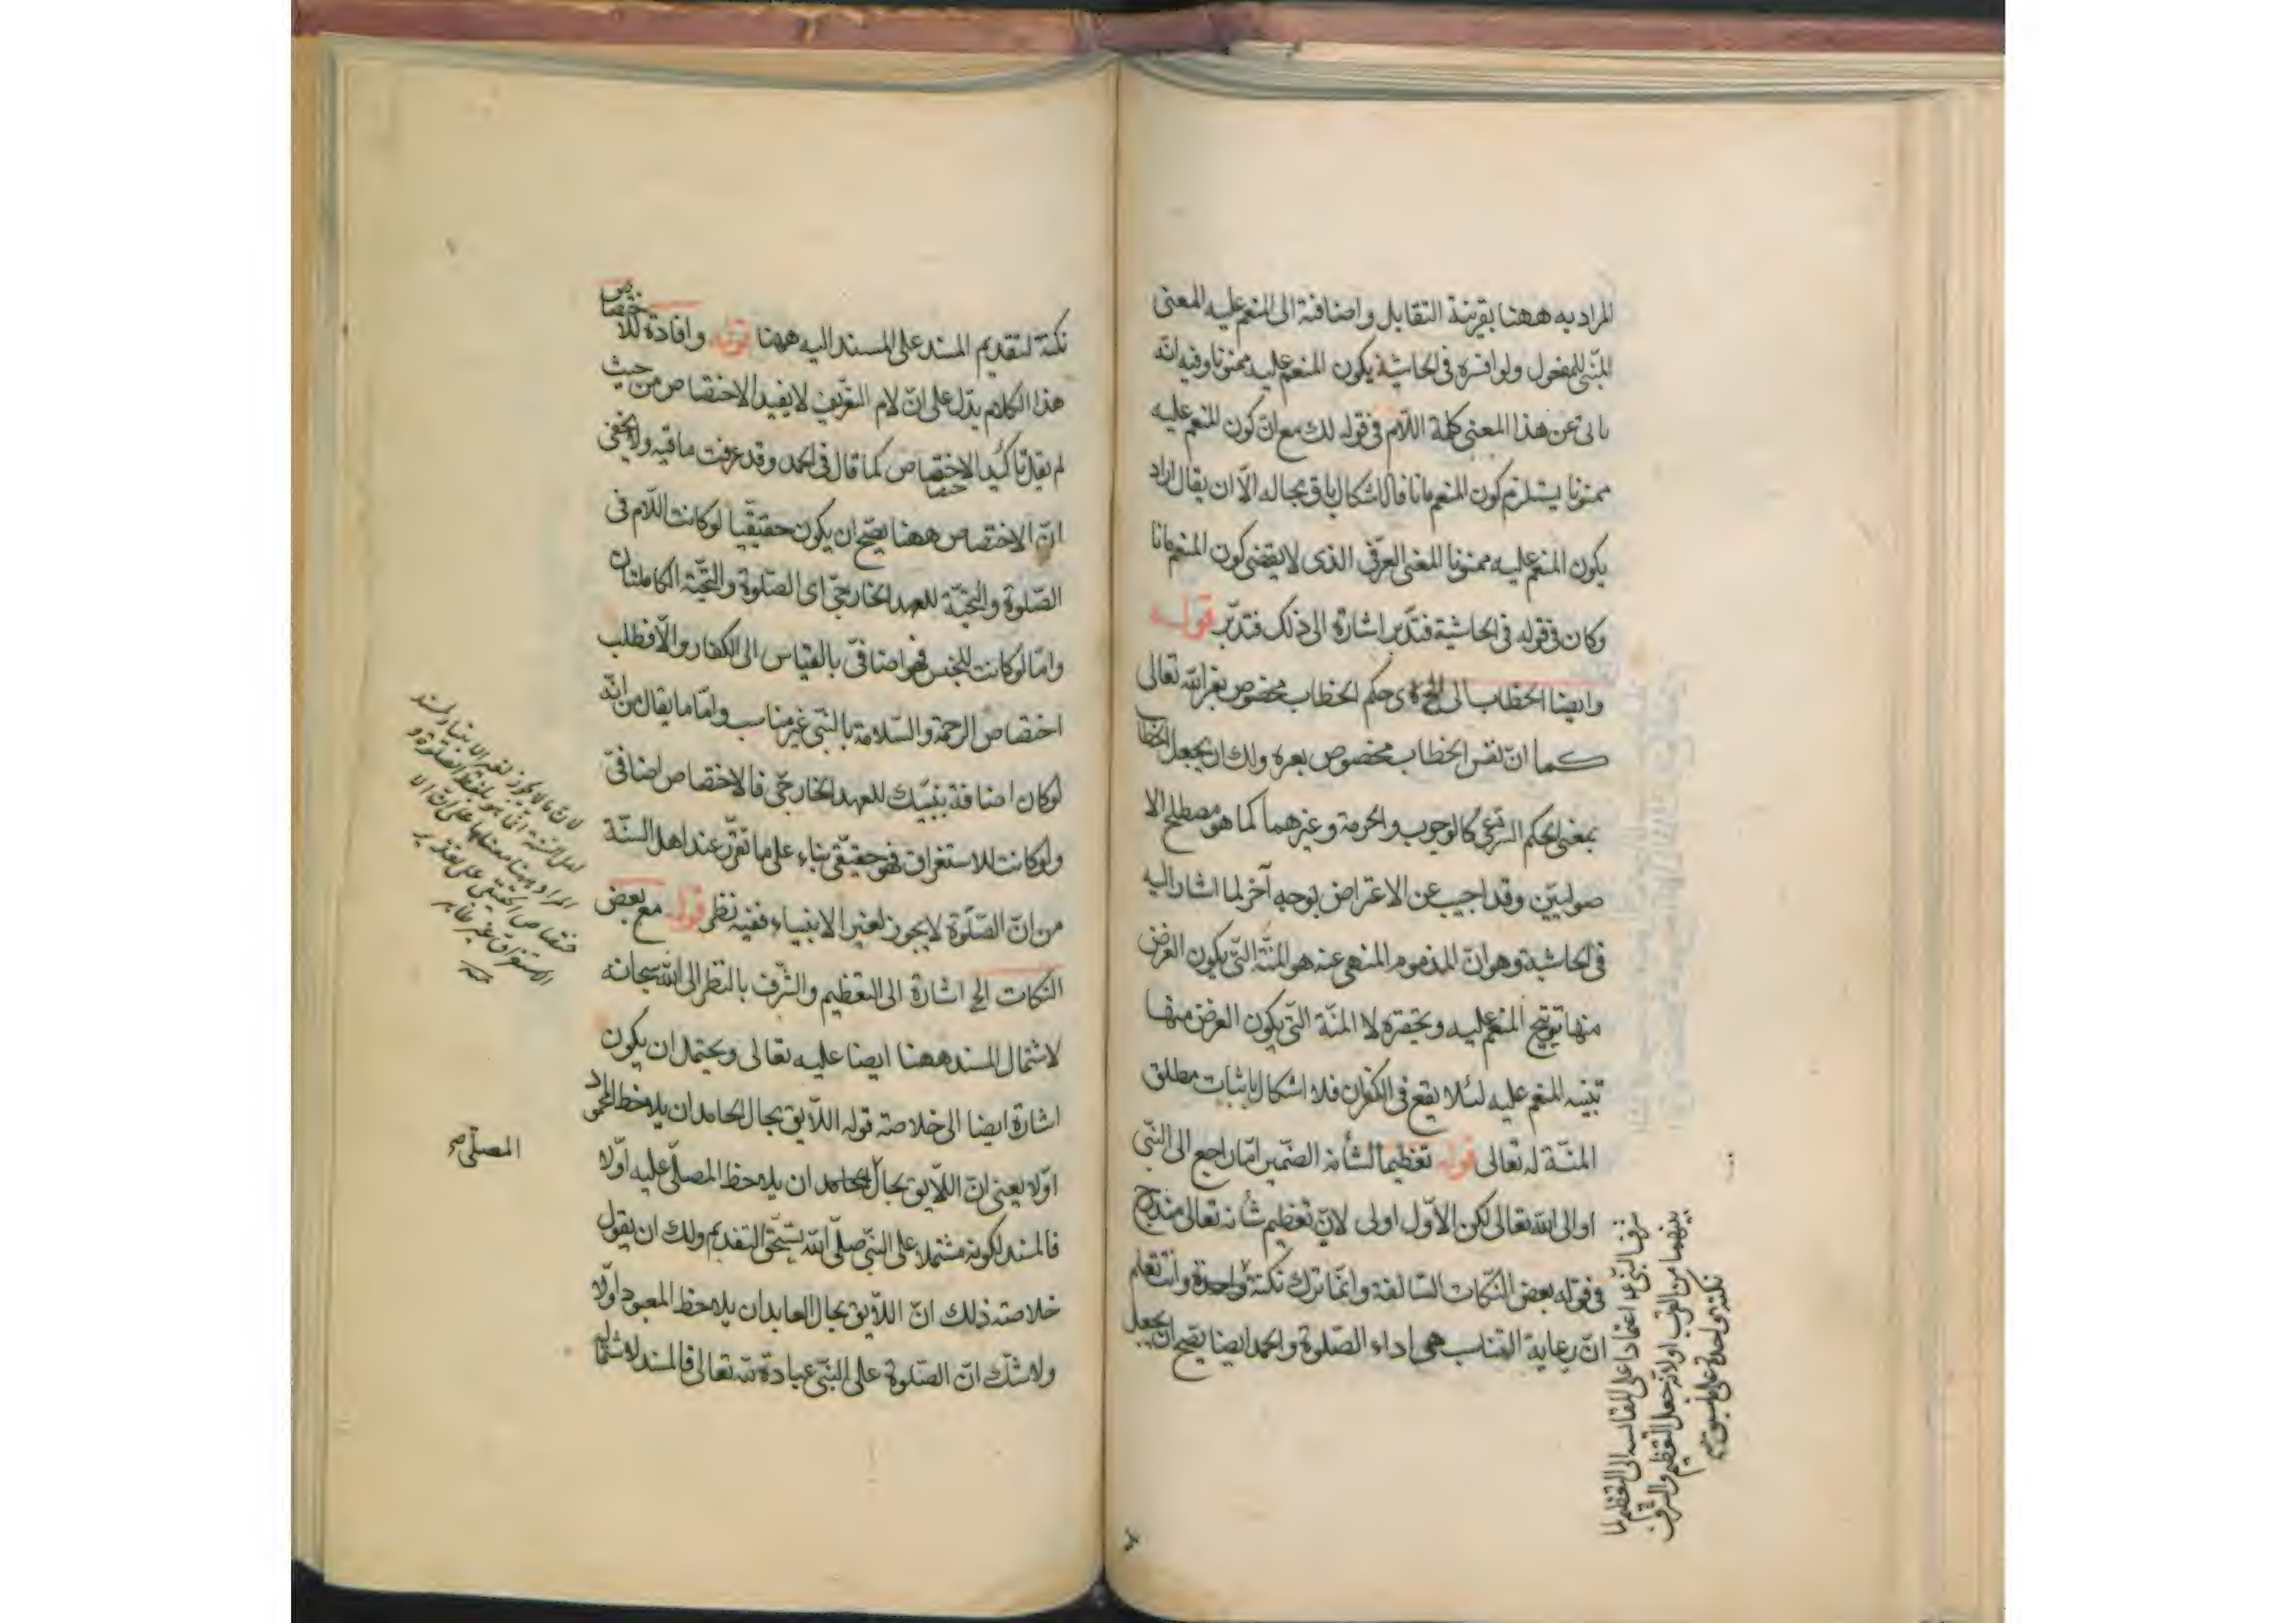 المراد به ههنا بقرينة التقابل واضافته الى المنعم عليه المعنى
المبنى للمفعول ولو افسره فى الحاشية بكون المنعم عليه ممنونا وفيه انه
يابى عن هذا المعنى كلمة اللام فى قوله لك مع ان كون المنعم عليه
ممنونا يستلزم كون المنعم مانا فالاشكال باق بحاله الا ان يقال اراد
بكون المنعم عليه ممنونا المعنى العرفى الذى لا يقتضى كون المنعم مانا
وكان فى قوله فى الحاشية فتدبر اشارة الى ذلك فتدبر قوله
وايضا الخطاب الى الخ اى حكم الخطاب مخصوص بغير الله تعالى
كما ان نفس الخطاب مخصوص بغيره ولك ان يجعل الخطاب
بمعنى الحكم الشرعى كالوجوب والحرمة وغيرهما كما هو مصطلح الا
صوليين وقد اجيب عن الاعتراض بوجه آخر لما اشار اليه
فى الحاشية وهو ان المذموم المنهى عنه هو المنة التى يكون الغرض
منها توبيخ المنعم عليه وتحقيره لا المنة التى يكون الغرض منها
تنبيه المنعم عليه لئلا يقع فى الكفران فلا اشكال باثبات مطلق
المنة له تعالى قوله تعظيما لشأنه الضمير اما راجع الى النبى
او الى الله تعالى لكن الاول اولى لان تعظيم شأنه تعالى مندرج
فى قوله بعض النكات السالفة وانما ترك نكتة واحدة وانت تعلم
ان رعاية التناسب هى اداء الصلوة والحمد ايضا يصح ان يجعل
اعتمادا على المقايسة الى التعظيم
بينهما من القرب اولانه جعل التعظيم والشرف
نكتة واحدة على ما سبق
نكتة لتقديم المسند على المسند اليه ههنا قوله وافادة للاختصاص
هذا الكلام يدل على ان لام التعريف لا يفيد الاختصاص من حيث
لم يقل تاكيد الاختصاص كما قال فى الحمد وقد عرفت ما فيه ولا يخفى
ان الاختصاص ههنا يصح ان يكون حقيقيا لو كانت اللام فى
الصلوة والتحية للعهد الخارجى اى الصلوة والتحية الكاملتان
واما لو كانت للجنس فهو اضافى بالقياس الى الكفار والا فطلب
اختصاص الرحمة والسلامة بالنبى غير مناسب واما ما يقال من انه
لو كان اضافة نبيك للعهد الخارجى فالاختصاص اضافى
ولو كانت للاستغراق فهو حقيقى بناء على ما تقرر عند اهل السنة
من ان الصلوة لا يجوز لغير الانبياء ففيه نظر قوله مع بعض
النكات الخ اشارة الى التعظيم والشرف بالنظر الى الله سبحانه
لاشتمال المسند ههنا ايضا عليه تعالى ويحتمل ان يكون
اشارة ايضا الى خلاصة قوله اللايق بحال الحامد ان يلاحظ المحمود
اولا يعنى ان اللايق بحال ان يلاحظ المصلى عليه اولا
فالمسند لكونه مشتملا على النبى صلى الله يستحق التقديم ولك ان يقول
خلاصته ذلك ان اللايق بحال العابد ان يلاحظ المعبود اولا
ولا شك ان الصلوة على النبى عبادة لله تعالى فالمسند لاشتماله
لان ما لا يجوز لغير الانبياء عند
اهل السنة انما هو بلفظ الصلوة و
المراد ههنا معناها على ان الا
ختصاص الحقيقى على تقدير
الاستغراق غير ظاهر
منه
المصلى صح